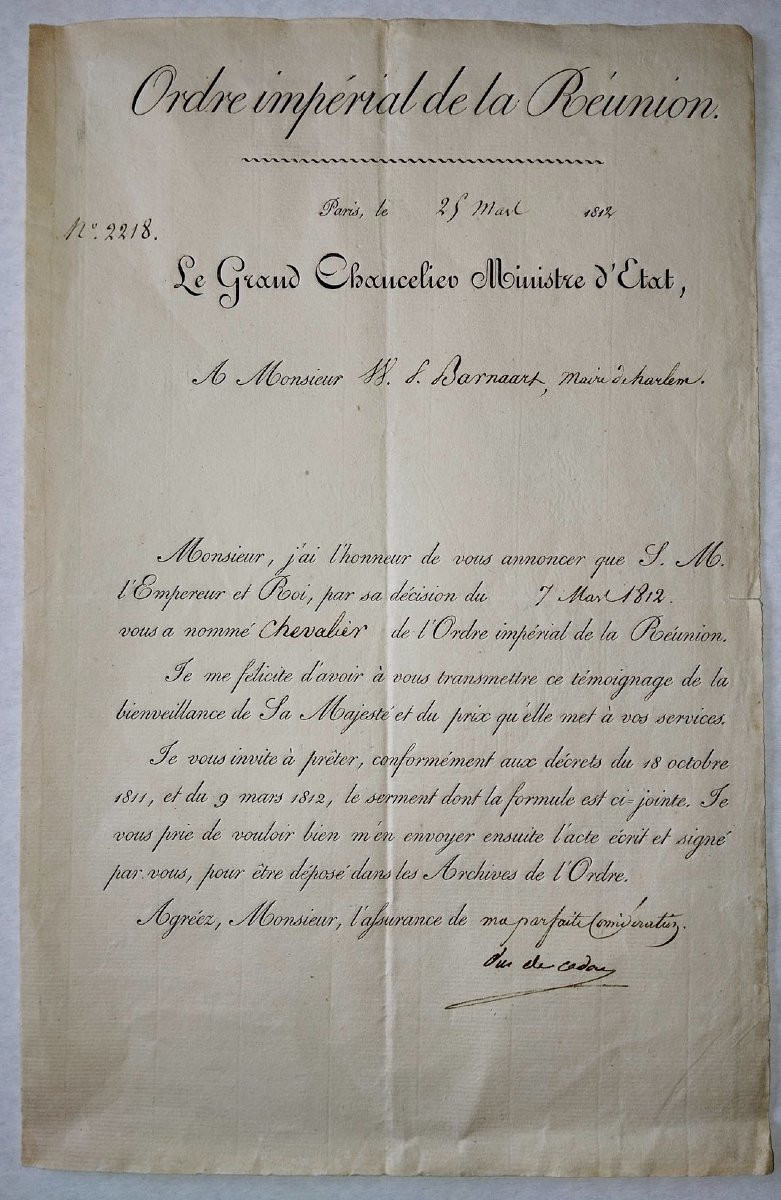 Ordre impérial de la Réunion.
Paris, le 25 Mars 1812
N.º 2218.
Le Grand Chancelier Ministre d'Etat,
A Monsieur W. P. Barnaart, Maire de harlem.
Monsieur, j'ai l'honneur de vous annoncer que S. M.
l'Empereur et Roi, par sa décision du 7 Mars 1812.
vous a nommé Chevalier de l'Ordre impérial de la Réunion.
Je me félicite d'avoir à vous transmettre ce témoignage de la
bienveillance de Sa Majesté et du prix qu'elle met à vos services.
Je vous invite à prêter, conformément aux décrets du 18 octobre
1811, et du 9 mars 1812, le serment dont la formule est ci-jointe. Je
vous prie de vouloir bien m'en envoyer ensuite l'acte écrit et signé
par vous, pour être déposé dans les Archives de l'Ordre.
Agréez, Monsieur, l'assurance de ma parfaite Considération.
Duc de cadore